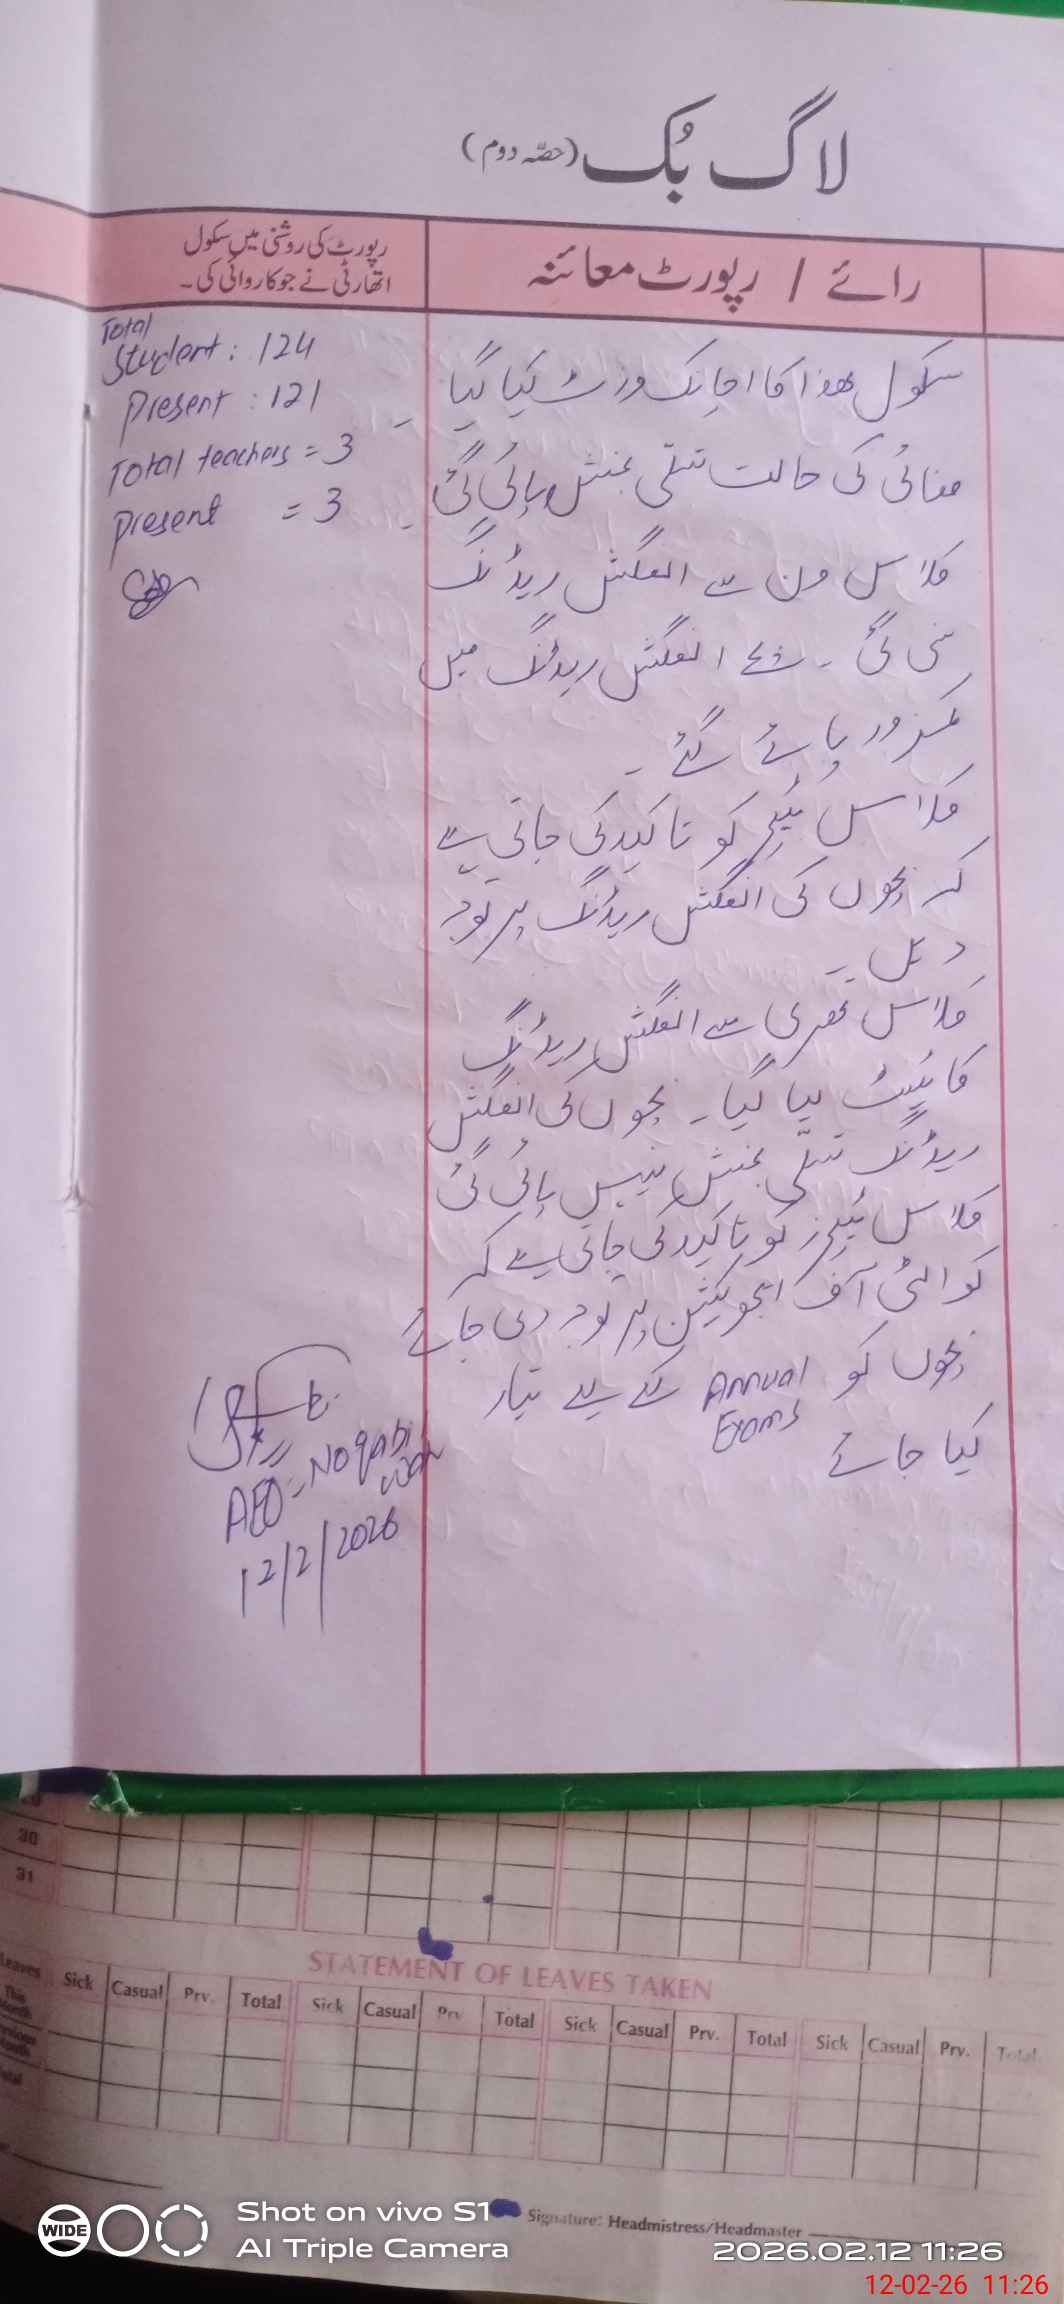 لاگ بُک (حصّہ دوم)
رائے / رپورٹ معائنہ
رپورٹ کی روشنی میں سکول
اتھارٹی نے جو کاروائی کی۔
سکول ھذا کا اچانک وزٹ کیا گیا۔
صفائی کی حالت تسلی بخش پائی گئی۔
کلاس ون سے انگلش ریڈنگ
سنی گئی۔ بچے انگلش ریڈنگ میں
کمزور پائے گئے۔
کلاس ٹیچر کو تاکید کی جاتی ہے
کہ بچوں کی انگلش ریڈنگ پر توجہ
دیں۔
کلاس تھری سے انگلش ریڈنگ
کا ٹیسٹ لیا گیا۔ بچوں کی انگلش
ریڈنگ تسلی بخش نہیں پائی گئی
کلاس ٹیچرز کو تاکید کی جاتی ہے کہ
کوالٹی آف ایجوکیشن پر توجہ دی جائے
بچوں کو Annual Exams کے لیے تیار
کیا جائے
Total
Student: 124
Present: 121
Total teachers = 3
Present = 3
AEO
12/2/2026
30
31
STATEMENT OF LEAVES TAKEN
Leaves Sick Casual Prv. Total Sick Casual Prv Total Sick Casual Prv. Total Sick Casual Prv. Total
This
Month
Signature: Headmistress/Headmaster
WIDE
Shot on vivo S1
AI Triple Camera
2026.02.12 11:26
12-02-26 11:26